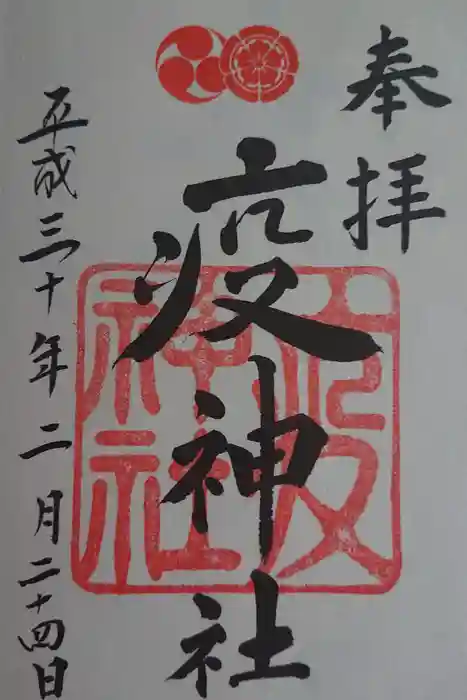 奉拝
疫神社
平成三十年二月二十四日
疫神社